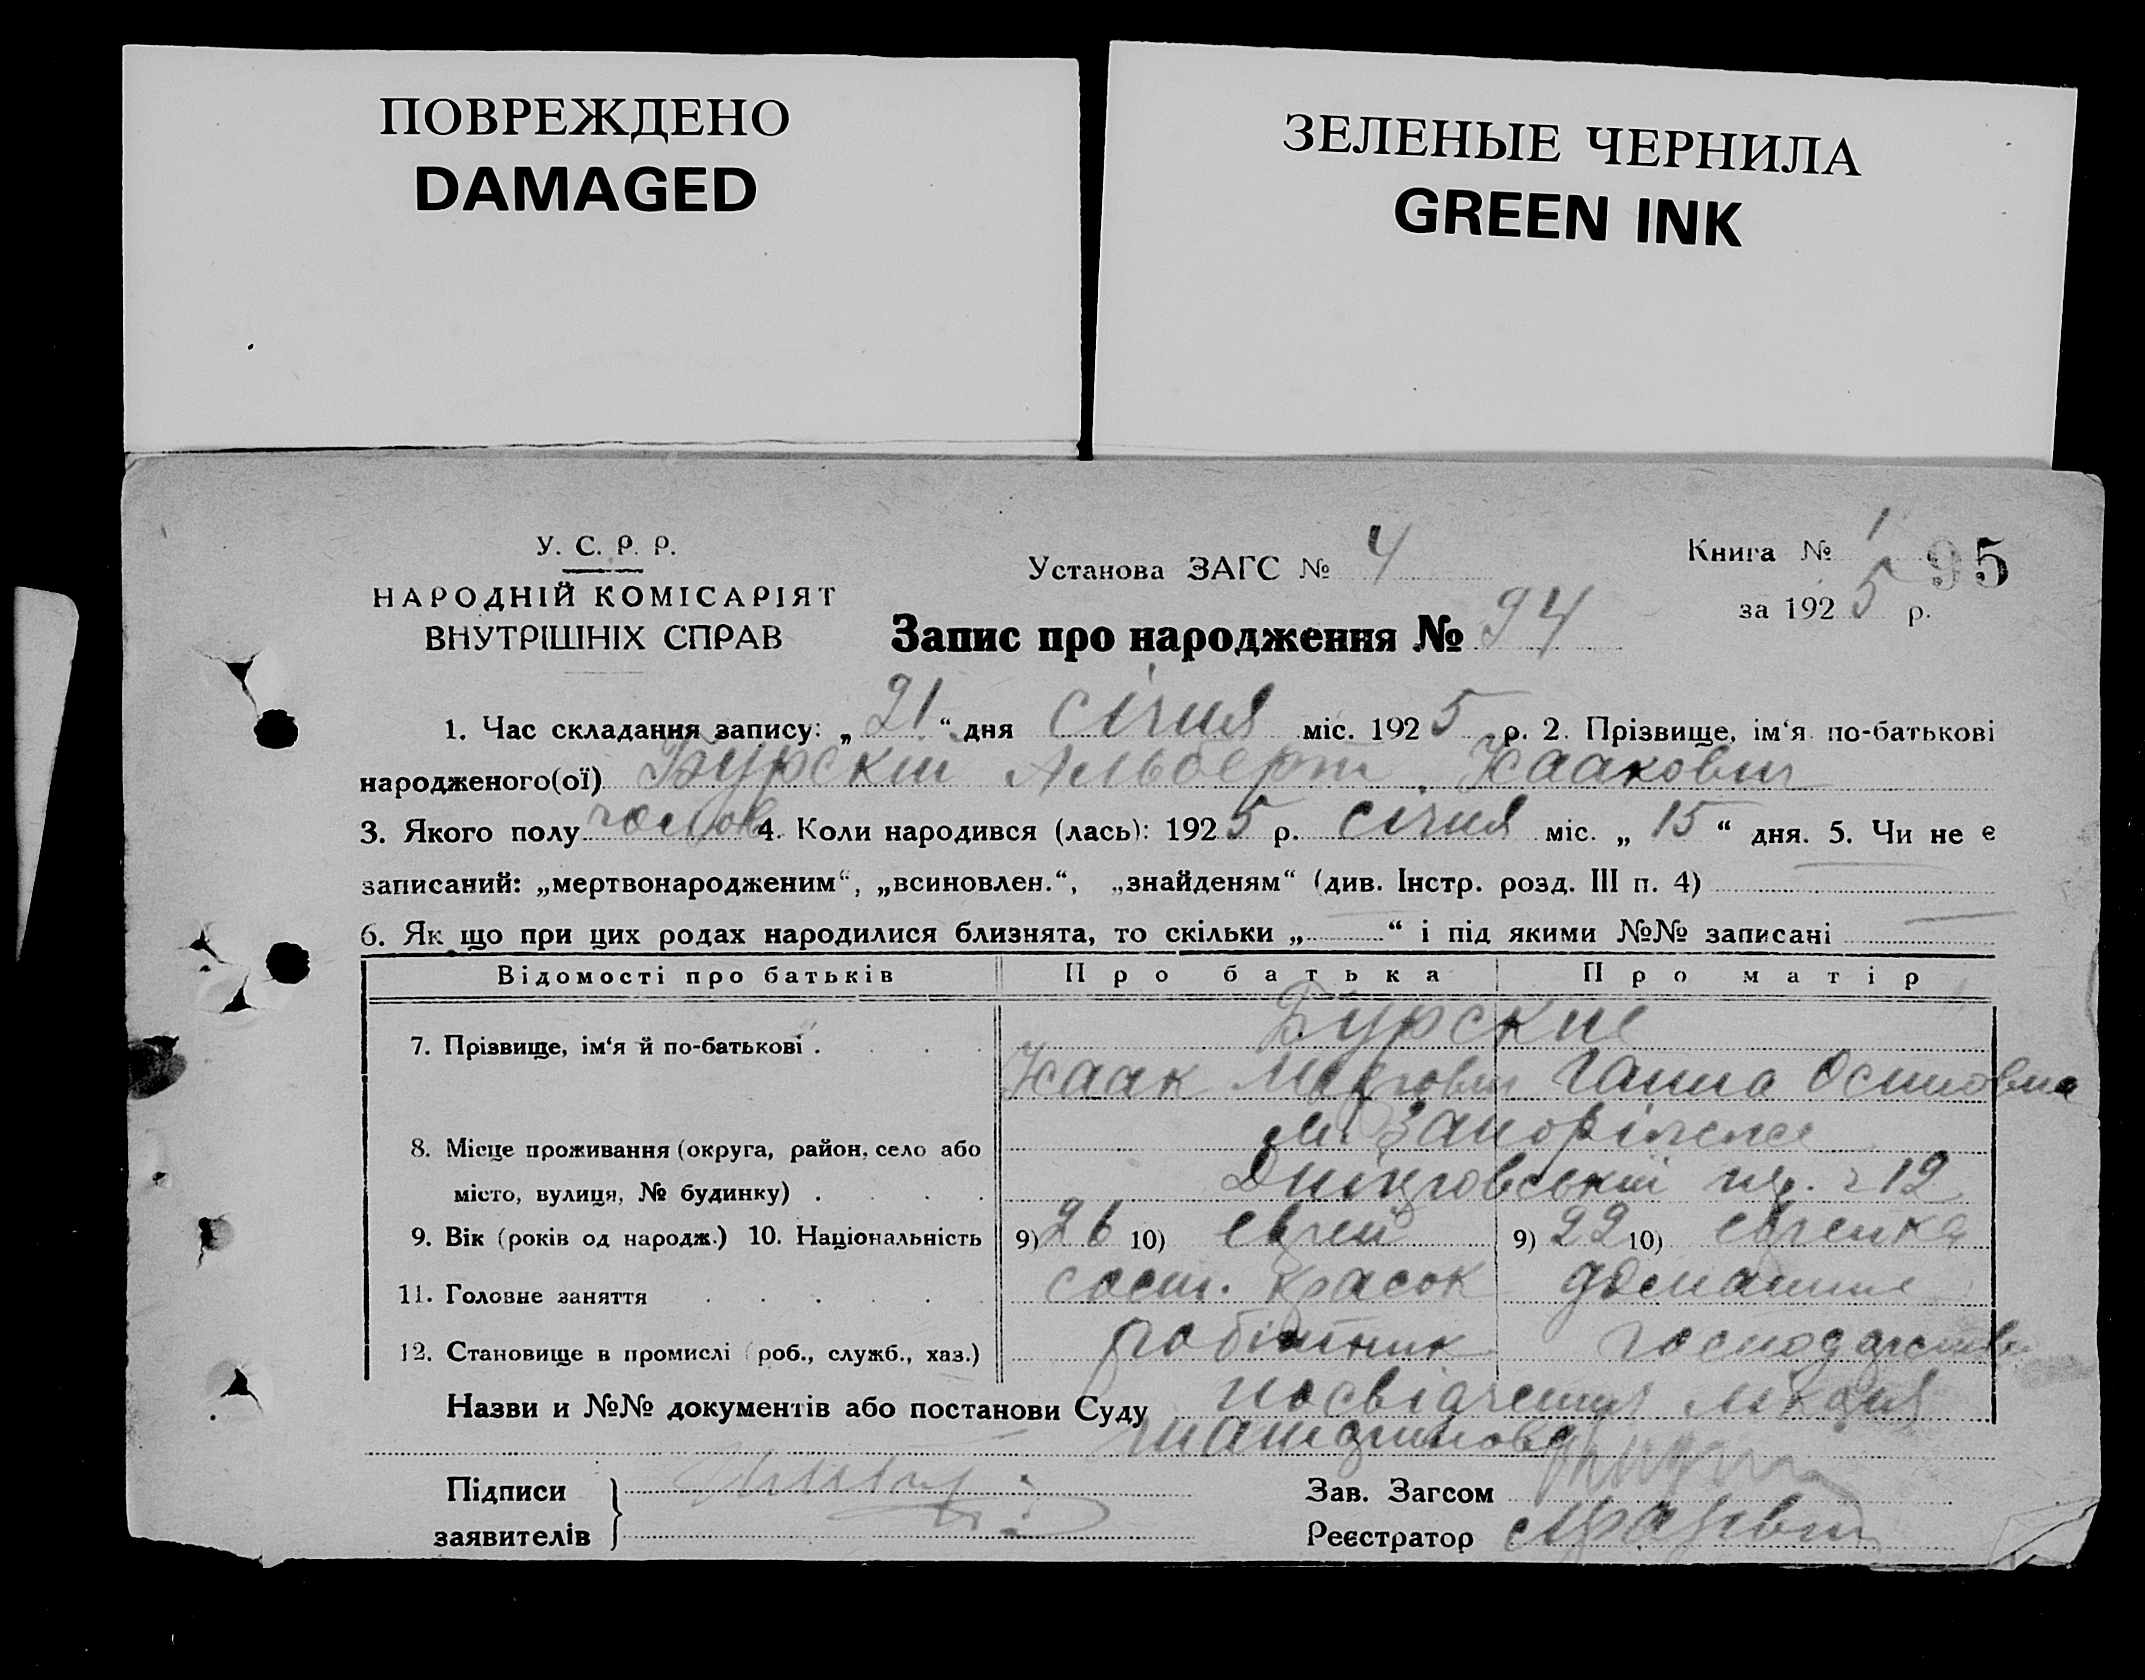 ПОВРЕЖДЕНО
DAMAGED
ЗЕЛЕНЫЕ ЧЕРНИЛА
GREEN INK
У. С. Р. Р.
НАРОДНІЙ КОМІСАРІЯТ
ВНУТРІШНІХ СПРАВ
Установа ЗАГС № 4
Книга № 1
95
за 1925 р.
Запис про народження № 94
1. Час складання запису: „21“ дня січня міс. 1925 р. 2. Прізвище, ім‘я по-батькові
народженого(ої) Бурский Альберт Исаакович
3. Якого полу 4. Коли народився (лась): 1925 р. січня міс. „15“ дня. 5. Чи не є
записаний: „мертвонародженим“, „всиновлен.“, „знайденям“ (див. Інстр. розд. III п. 4)
6. Як що при цих родах народилися близнята, то скільки „ “ і під якими №№ записані
Відомості про батьків Про батька Про матір
Бурские
7. Прізвище, ім‘я й по-батькові
Исаак Ганна Осиповна
м. Запоріжже
8. Місце проживання (округа, район, село або
місто, вулиця, № будинку) 12
9. Вік (років од народж.) 10. Національність 9) 26 10) еврей 9) 22 10) еврейка
11. Головне заняття красок домашнє
12. Становище в промислі (роб., служб., хаз.) робітник господарство
Назви и №№ документів або постанови Суду посвідчення
Підписи
заявителів
Зав. Загсом
Реєстратор